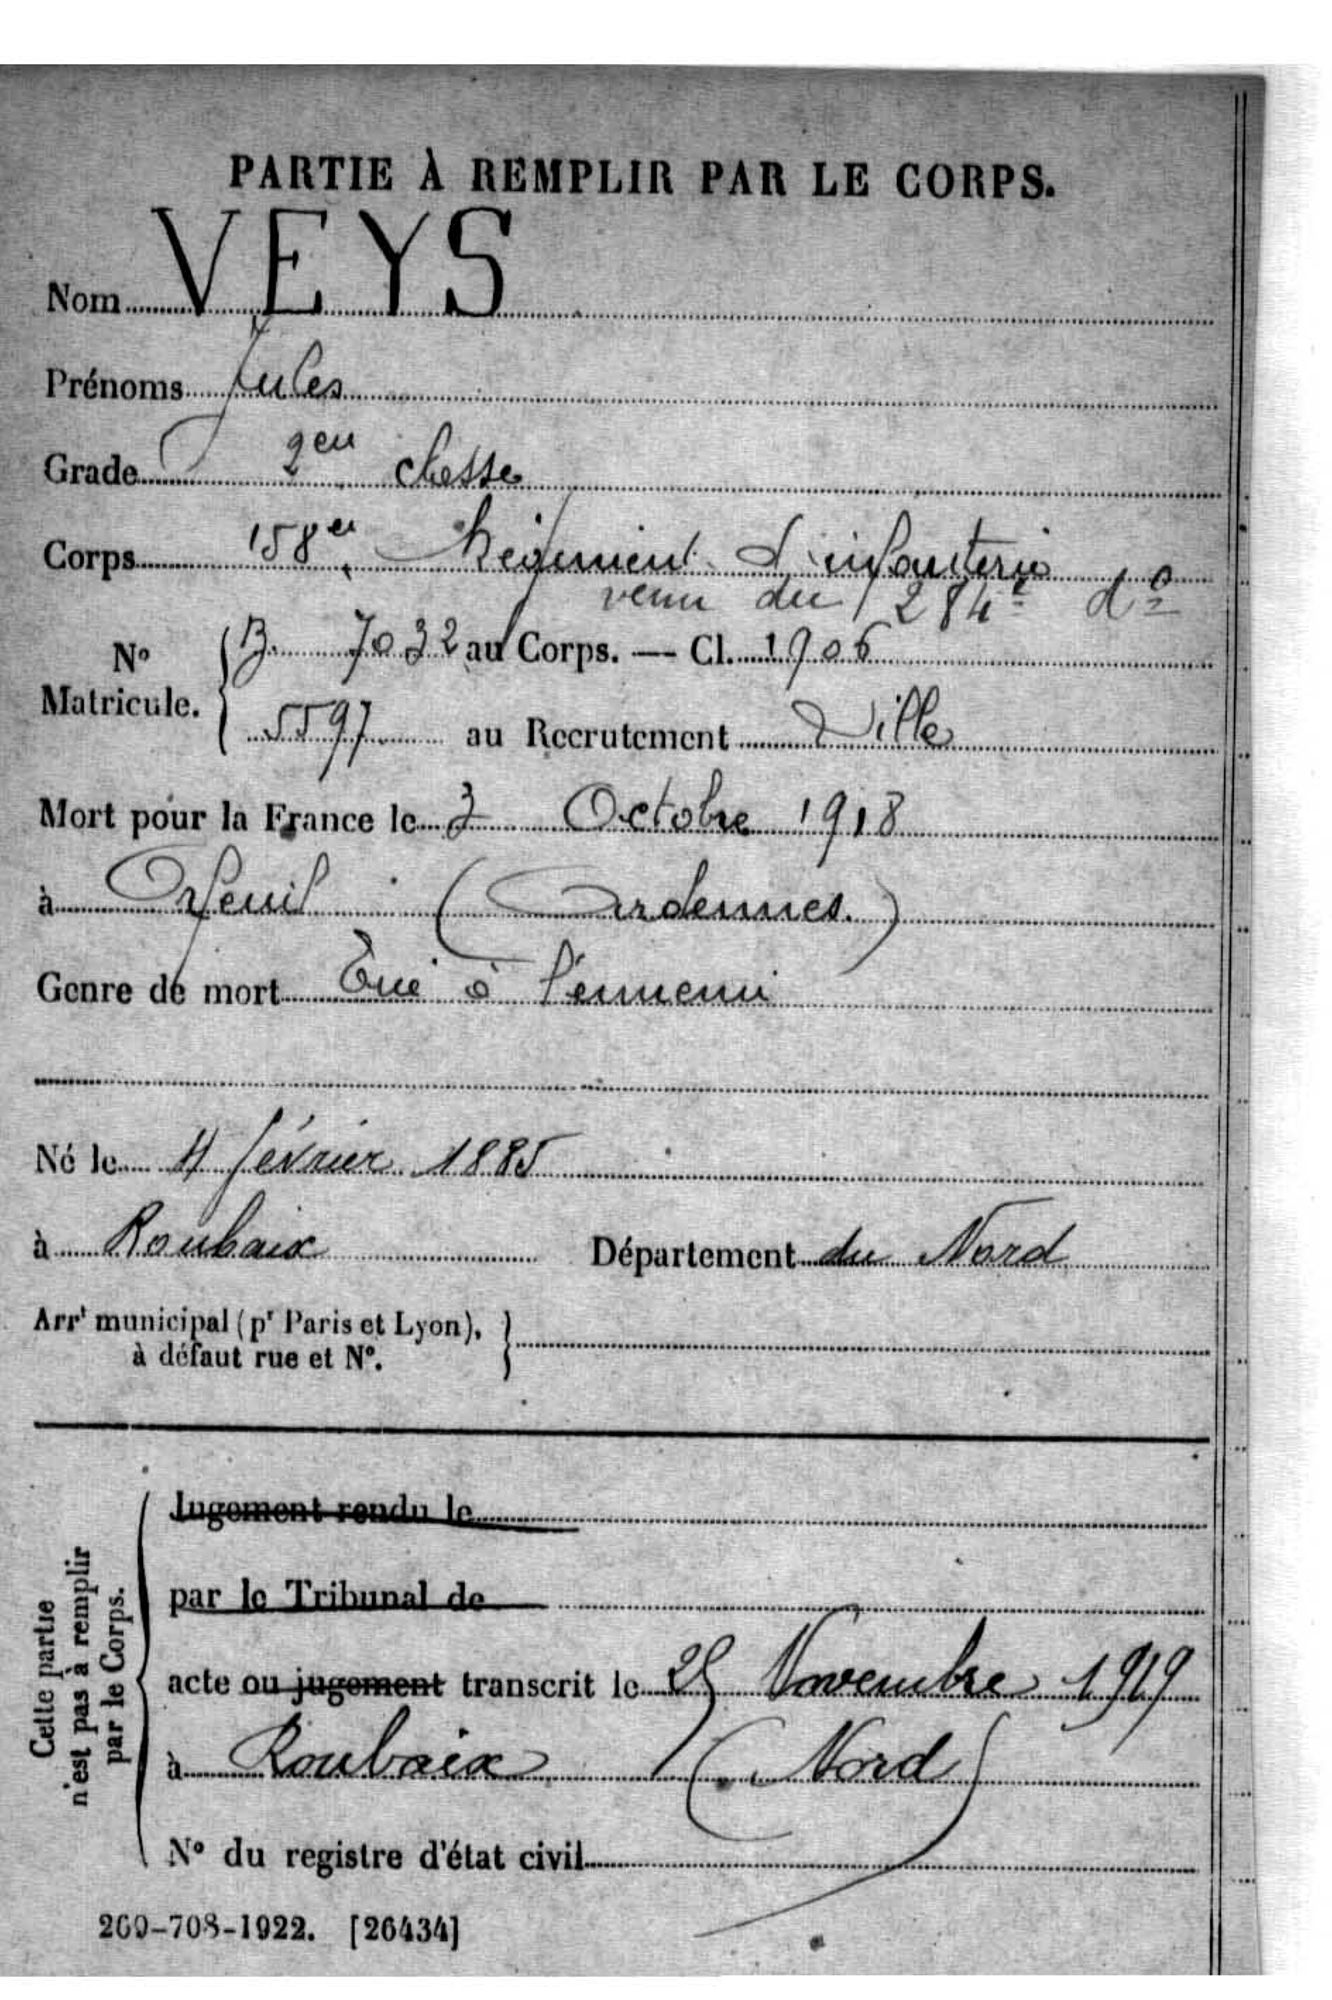 PARTIE À REMPLIR PAR LE CORPS.
Nom VEYS
Prénoms Jules
Grade 2em classe
Corps 158e Régiment d'infanterie
venu du 284e do
No Matricule. { B. 7032 au Corps. — Cl. 1906
5597 au Recrutement Lille
Mort pour la France le 3 Octobre 1918
à Orfeuil (Ardennes.)
Genre de mort Tué à l'ennemi
Né le 4 février 1885
à Roubaix Département du Nord
Arrt municipal (pr Paris et Lyon), à défaut rue et No. }
Cette partie n'est pas à remplir par le Corps.
Jugement rendu le
par le Tribunal de
acte ou jugement transcrit le 25 Novembre 1919
à Roubaix (Nord)
No du registre d'état civil
269-708-1922. [26434]